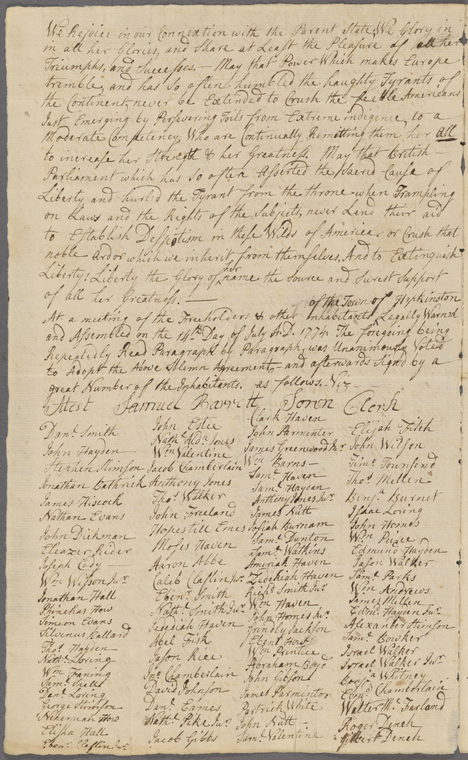 We Rejoice in our Connextion with the Parent State, We Glory in
in all her Glories, and Share at Least the Pleasure of all her
Triumphs, and Successes. — May that Power Which makes Europe
tremble, and has So often humbled the haughty Tyrants of
the Continent, never be Extended to Crush the feeble Americans
Just Emerging by Persevering Toils from Extreme indigence, to a
Moderate Competency, Who are Continually Remitting them her all
to increase her Strength & her Greatness. May that British
Parliament which has So often Asserted the Sacred Cause of
Liberty, and hurl'd the Tyrant from the throne when Trampling
on Laws and the Rights of the Subjects, never Lend their aid
to Establish Despotism in these Wilds of America, or Crush that
noble Ardor which we inherit, from themselves, And to Extinguish
Liberty: Liberty the Glory of name the Source and Surest Support
of all her Greatness! —
of the Town of Hopkinston
At a meeting of the Freeholders & other inhabitants Legally Warned
and Assembled on the 14th Day of July A.D. 1774. The foregoing being
Repeatedly Read Paragraph by Paragraph, was Unanimously Voted
to Adopt the Above Solemn Agreement, and afterwards Signd by a
great Number of the Inhabitants. as follows. Viz
Attest Samuel Barrett Town Clerk
Danl. Smith
John Hayden
Stephen Stimson
Jonathan
James Hiscock
Nathan Evans
John Dickman
Eleazer Rider
Joseph Cody
Wm Wesson Junr.
Jonathan Hall
Phinehas How
Simeon Evans
Silvenus Ballard
Thos. Hayden
Nathl. Loring
Wm
Saml.
Danl. Loring
George Stimson
Nehemiah How
Elisha Hall
Ebenr. Claflin Junr.
John Eslee
Nathl.
Wm Valentine
Jacob Chamberlain
Anthony Jones
Thos. Walker
John Freeland
Hopestill
Moses Haven
Aaron Abbe
Caleb Claflin Junr.
Ebenr. Smith
Nathl. Smith Junr.
Jedediah Haven
Abel Fisk
Jason Rice
Jno. Chamberlain
David Johnson
Danl. Eames
Nathl. Pike Junr.
Jacob Gibbs
Clark Haven
John Parmenter
James Greenwood Junr.
Wm Barns
Saml. Haven
Saml. Hayden
Anthony Jones Junr.
James Nutt
Josiah Burnam
Saml. Dunton
Saml. Watkins
Amariah Haven
Hezekiah Haven
Smith Junr.
Wm Haven
John Homes Junr.
Grindly Jackson
Wm Prentice
Abraham
John Gibson
James Parmenter
Partrick White
John Nutt
Saml. Valentine
Elijah Fitch
John Wilson
Saml. Townsend
Thos. Mellen
Benja. Burnet
Isaac Loring
John Homes
Wm Peirce
Edmund Hayden
Jason Walker
Saml. Parks
Wm Andrews
James Mellen
Edmd. Hayden Junr.
Alexander Stimson
Saml. Bowker
Israel Walker
Israel Walker Junr.
Whitney
Ebenr. Chamberlain
Walter
Roger Dench
Gilbert Dench